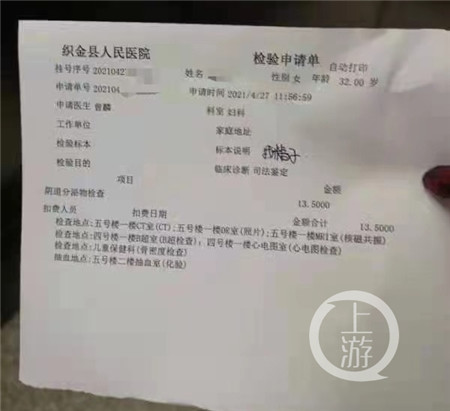 织金县人民医院
检验申请单 自动打印
挂号序号 2021042 姓名 性别 女 年龄 32.00 岁
申请单号 202104 申请时间 2021/4/27 11:56:59
申请医生 曾麟 科室 妇科
工作单位 家庭地址
检验标本 标本说明
检验目的 临床诊断 司法鉴定
项目 金额
阴道分泌物检查 13.5000
扣费人员 扣费日期 金额合计 13.5000
检查地点:五号楼一楼CT室(CT);五号楼一楼DR室(照片);五号楼一楼MRI室(核磁共振)
检查地点:四号楼一楼B超室(B超检查);四号楼一楼心电图室(心电图检查)
检查地点:儿童保健科(骨密度检查)
抽血地点:五号楼二楼抽血室(化验)
上游